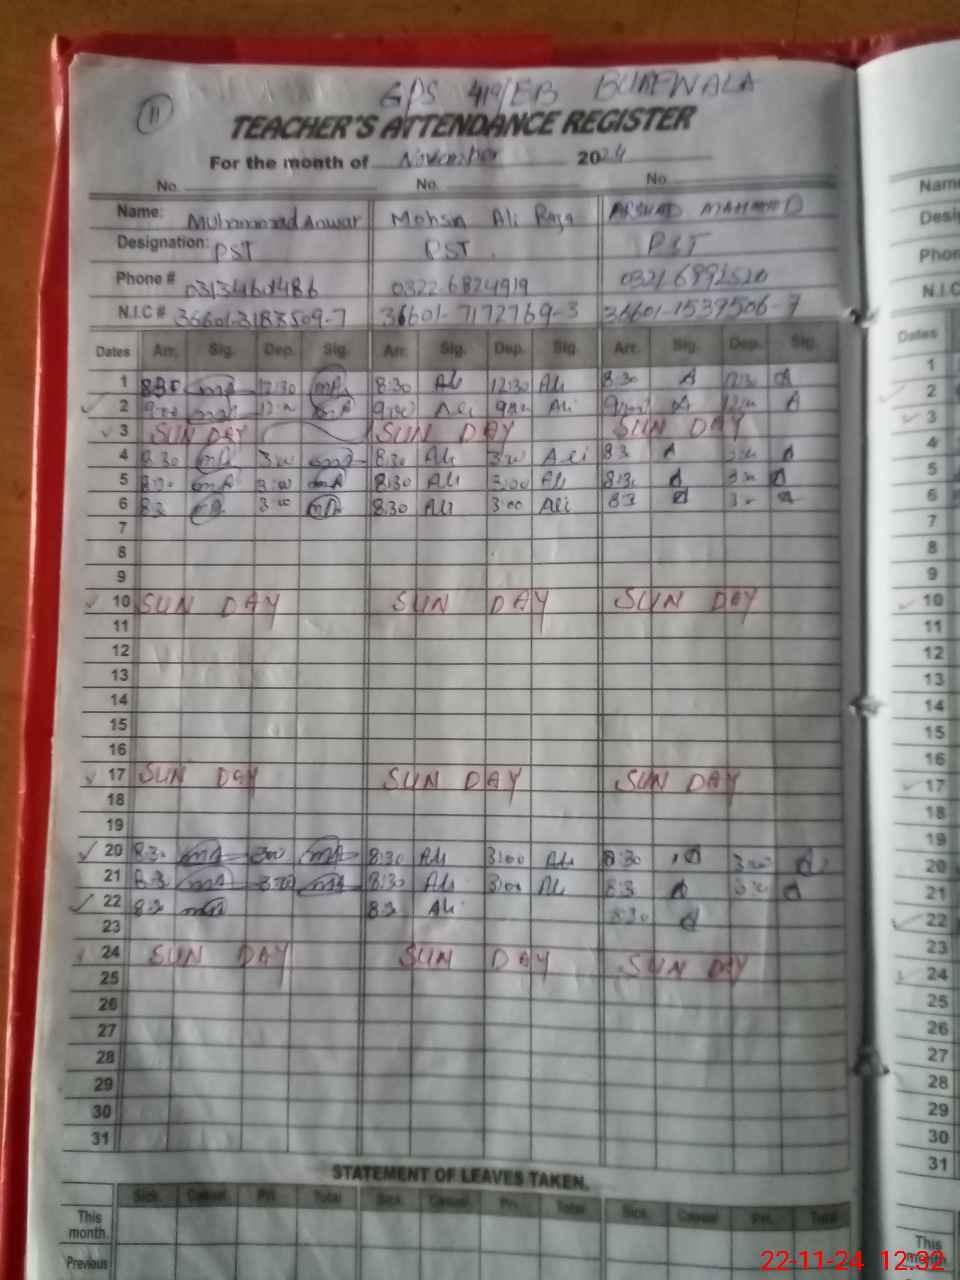 11
GPS 419/EB BUREWALA
TEACHER'S ATTENDANCE REGISTER
For the month of November 2024
No. No. No.
Name: Muhammad Anwar Mohsin Ali Raza ARSHAD MAHMOOD
Designation: PST PST PST
Phone # 0322 6824919 0321 6892520
N.I.C # 36601-3183509-7 36601-7172769-3 36601-1539506-7
Dates Arr. Sig. Dep. Sig. Arr. Sig. Dep. Sig. Arr. Sig. Dep. Sig.
1 830 mA 12:30 mA 8:30 Ali 12:30 Ali 8:30 A 12:30 A
2 9:00 mA 12:00 mA 9:00 Ali Ali 9:00 A 12:00 A
3 SUN DAY SUN DAY SUN DAY
4 8.30 mA 3:00 mA 8:30 Ali 3:00 Ali 83 A 3:00 A
5 8:30 mA 3:00 mA 8:30 Ali 3:00 Ali 8:3 A 3:00 A
6 8.3 mA 3:00 mA 8:30 Ali 3:00 Ali 83 A 3:00 A
7
8
9
10 SUN DAY SUN DAY SUN DAY
11
12
13
14
15
16
17 SUN DAY SUN DAY SUN DAY
18
19
20 8:30 mA 300 mA 8:30 Ali 3:00 Ali 8:30 A 3:00 A
21 8.3 mA 300 mA 8:30 Ali 3:00 Ali 8:3 A 3:00 A
22 8:3 mA 8:3 Ali 8:30 A
23
24 SUN DAY SUN DAY SUN DAY
25
26
27
28
29
30
31
STATEMENT OF LEAVES TAKEN.
Sick. Casual. Pri. Total Sick. Casual. Pri. Total Sick. Casual. Pri. Total
This
month.
Previous
Name
Desig
Phon
N.I.C
Dates
1
2
3
4
5
6
7
8
9
10
11
12
13
14
15
16
17
18
19
20
21
22
23
24
25
26
27
28
29
30
31
This
month
22-11-24 12:32